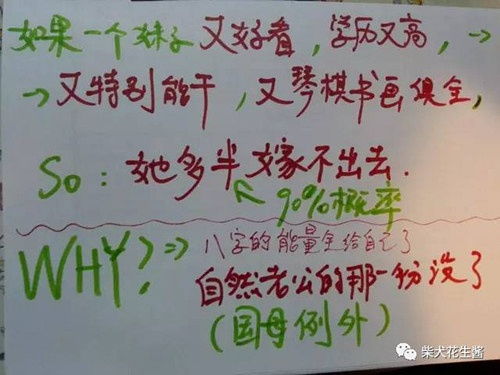 如果一个妹子又好看，学历又高，→
→又特别能干，又琴棋书画俱全，
So：她多半嫁不出去.
↖90%概率
WHY?⇒八字的能量全给自己了
自然老公的那一份没了
(国母例外)
柴犬花生酱